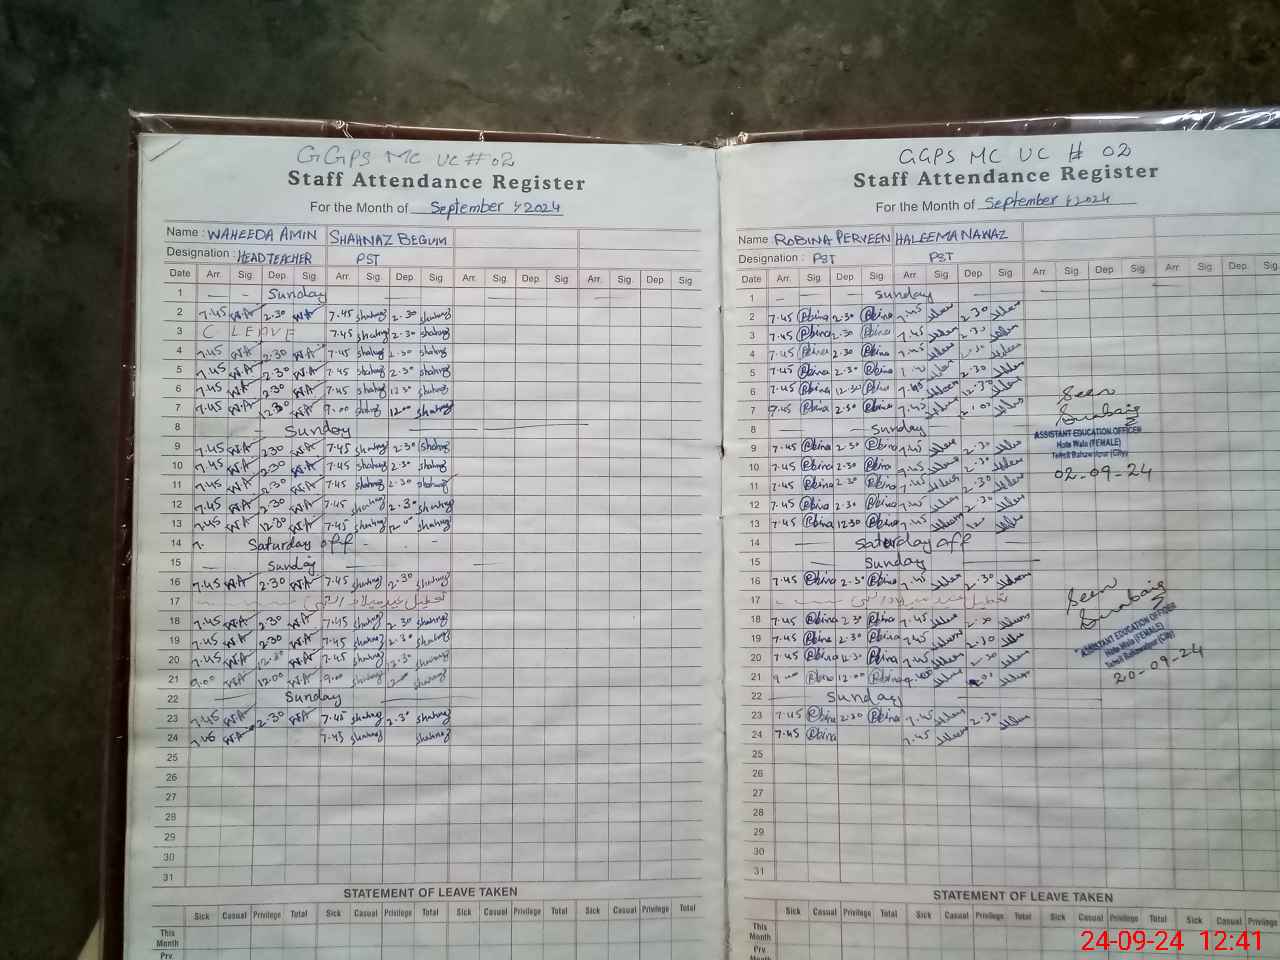 GGPS MC UC # 02
Staff Attendance Register
For the Month of September, 2024
Name : WAHEEDA AMIN SHAHNAZ BEGUM
Designation : HEAD TEACHER PST
Date Arr. Sig. Dep. Sig. Arr. Sig. Dep. Sig. Arr. Sig. Dep. Sig. Arr. Sig. Dep. Sig.
1 Sunday
2 7.45 WA 2.30 WA 7.45 shahnaz 2.30 shahnaz
3 C LEAVE 7.45 shahnaz 2.30 shahnaz
4 7.45 WA 2.30 WA 7.45 shahnaz 2.30 shahnaz
5 7.45 WA 2.30 WA 7.45 shahnaz 2.30 shahnaz
6 7.45 WA 2.30 WA 7.45 shahnaz 12.30 shahnaz
7 7.45 WA 12.30 WA 9.00 shahnaz 12.00 shahnaz
8 Sunday
9 7.45 WA 2.30 WA 7.45 shahnaz 2.30 shahnaz
10 7.45 WA 2.30 WA 7.45 shahnaz 2.30 shahnaz
11 7.45 WA 2.30 WA 7.45 shahnaz 2.30 shahnaz
12 7.45 WA 2.30 WA 7.45 shahnaz 2.30 shahnaz
13 7.45 WA 12.30 WA 7.45 shahnaz shahnaz
14 7. Saturday off
15 Sunday
16 7.45 WA 2.30 WA 7.45 shahnaz 2.30 shahnaz
17 تعطیل عید میلاد النبی
18 7.45 WA 2.30 WA 7.45 shahnaz 2.30 shahnaz
19 7.45 WA 2.30 WA 7.45 shahnaz 2.30 shahnaz
20 7.45 WA 12.30 WA 7.45 shahnaz 12.30 shahnaz
21 9.00 WA 12.00 WA 9.00 shahnaz shahnaz
22 Sunday
23 7.45 WA 2.30 WA 7.45 shahnaz 2.30 shahnaz
24 7.45 WA 7.45 shahnaz shahnaz
25
26
27
28
29
30
31
STATEMENT OF LEAVE TAKEN
Sick Casual Privilege Total Sick Casual Privilege Total Sick Casual Privilege Total Sick Casual Privilege Total
This Month
Prv.
GGPS MC UC # 02
Staff Attendance Register
For the Month of September, 2024
Name : ROBINA PERVEEN HALEEMA NAWAZ
Designation : PST PST
Date Arr. Sig. Dep. Sig. Arr. Sig. Dep. Sig. Arr. Sig. Dep. Sig. Arr. Sig. Dep. Sig.
1 Sunday
2 7.45 Robina 2.30 Robina 7.45 2.30
3 7.45 Robina 2.30 Robina 7.45 2.30
4 7.45 Robina 2.30 Robina 7.45 2.30
5 7.45 Robina 2.30 Robina 2.30
6 7.45 Robina 12.30 Robina 7.45 12.30
7 Robina Robina 7.45
8 Sunday
9 7.45 Robina 2.30 Robina 7.45 2.30
10 7.45 Robina 2.30 Robina 7.45 2.30
11 7.45 Robina 2.30 Robina 7.45 2.30
12 7.45 Robina 2.30 Robina 7.45 2.30
13 7.45 Robina 12.30 Robina 7.45
14 Saturday off
15 Sunday
16 7.45 Robina 2.30 Robina 7.45 2.30
17 تعطیل عید میلاد النبی
18 7.45 Robina 2.30 Robina 7.45 2.30
19 7.45 Robina 2.30 Robina 7.45 2.30
20 7.45 Robina 12.30 Robina 7.45
21 Robina 12.00 Robina
22 Sunday
23 7.45 Robina 2.30 Robina 7.45 2.30
24 7.45 Robina 7.45
25
26
27
28
29
30
31
Seen
ASSISTANT EDUCATION OFFICER
Hote Wala (FEMALE)
Tehsil Bahawalpur (City)
02-09-24
Seen
ASSISTANT EDUCATION OFFICER
Hote Wala (FEMALE)
Tehsil Bahawalpur (City)
20-09-24
STATEMENT OF LEAVE TAKEN
Sick Casual Privilege Total Sick Casual Privilege Total Sick Casual Privilege Total Sick Casual
This Month
Prv.
24-09-24 12:41